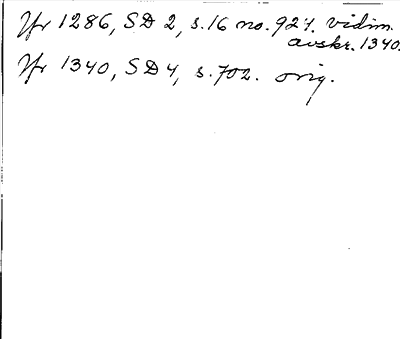 Jfr 1286, SD 2, s.16 no. 927. vidim.
avskr. 1340.
Jfr 1340, SD 4, s.702. orig.